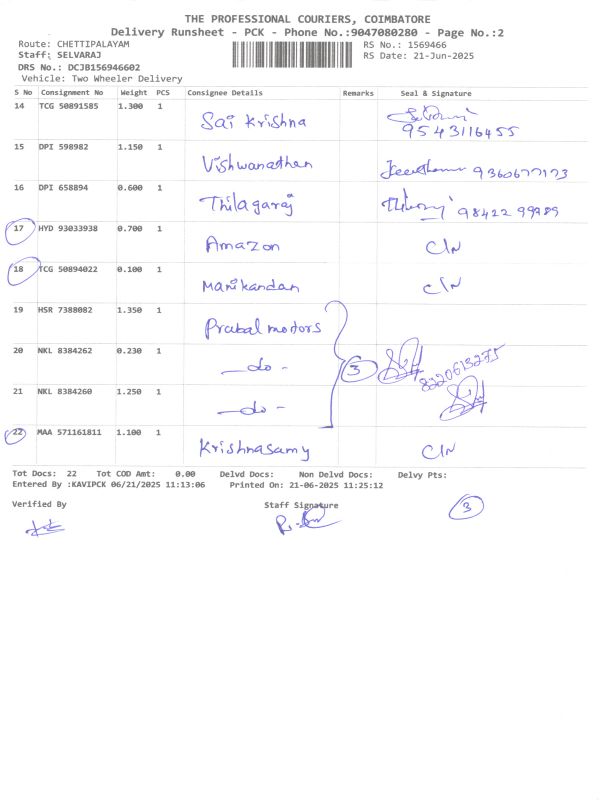 THE PROFESSIONAL COURIERS, COIMBATORE
Delivery Runsheet - PCK - Phone No.:9047080280 - Page No.:2
Route: CHETTIPALAYAM RS No.: 1569466
Staff: SELVARAJ RS Date: 21-Jun-2025
DRS No.: DCJB156946602
Vehicle: Two Wheeler Delivery
S No Consignment No Weight PCS Consignee Details Remarks Seal & Signature
14 TCG 50891585 1.300 1 Sai Krishna
9543116455
15 DPI 598982 1.150 1 Vishwanathan 9360677173
16 DPI 658894 0.600 1 Thilagaraj 98422 99989
17 HYD 93033938 0.700 1 Amazon C/N
18 TCG 50894022 0.100 1 Manikandan C/N
19 HSR 7388082 1.350 1 Prabal motors
20 NKL 8384262 0.230 1 -do- 3 8220613275
21 NKL 8384260 1.250 1 -do-
22 MAA 571161811 1.100 1 Krishnasamy C/N
Tot Docs: 22 Tot COD Amt: 0.00 Delvd Docs: Non Delvd Docs: Delvy Pts:
Entered By :KAVIPCK 06/21/2025 11:13:06 Printed On: 21-06-2025 11:25:12
Verified By Staff Signature 3